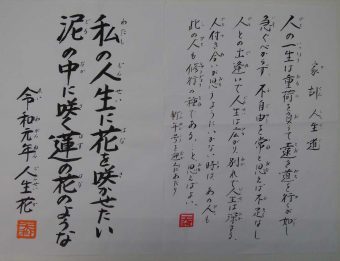 家訓 人生道
人の一生は重荷を負うて遠き道を行くが如し
急ぐべからず、不自由を常と思えば不足なし
人との出逢いで人生は広がり別れで人生は深まる、
人付き合いが思うようにいかない時は、あの人も
此の人も修行の種である、と思えばよい、
私の人生に花を咲かせたい
泥の中に咲く蓮の花のような
令和元年 人生花